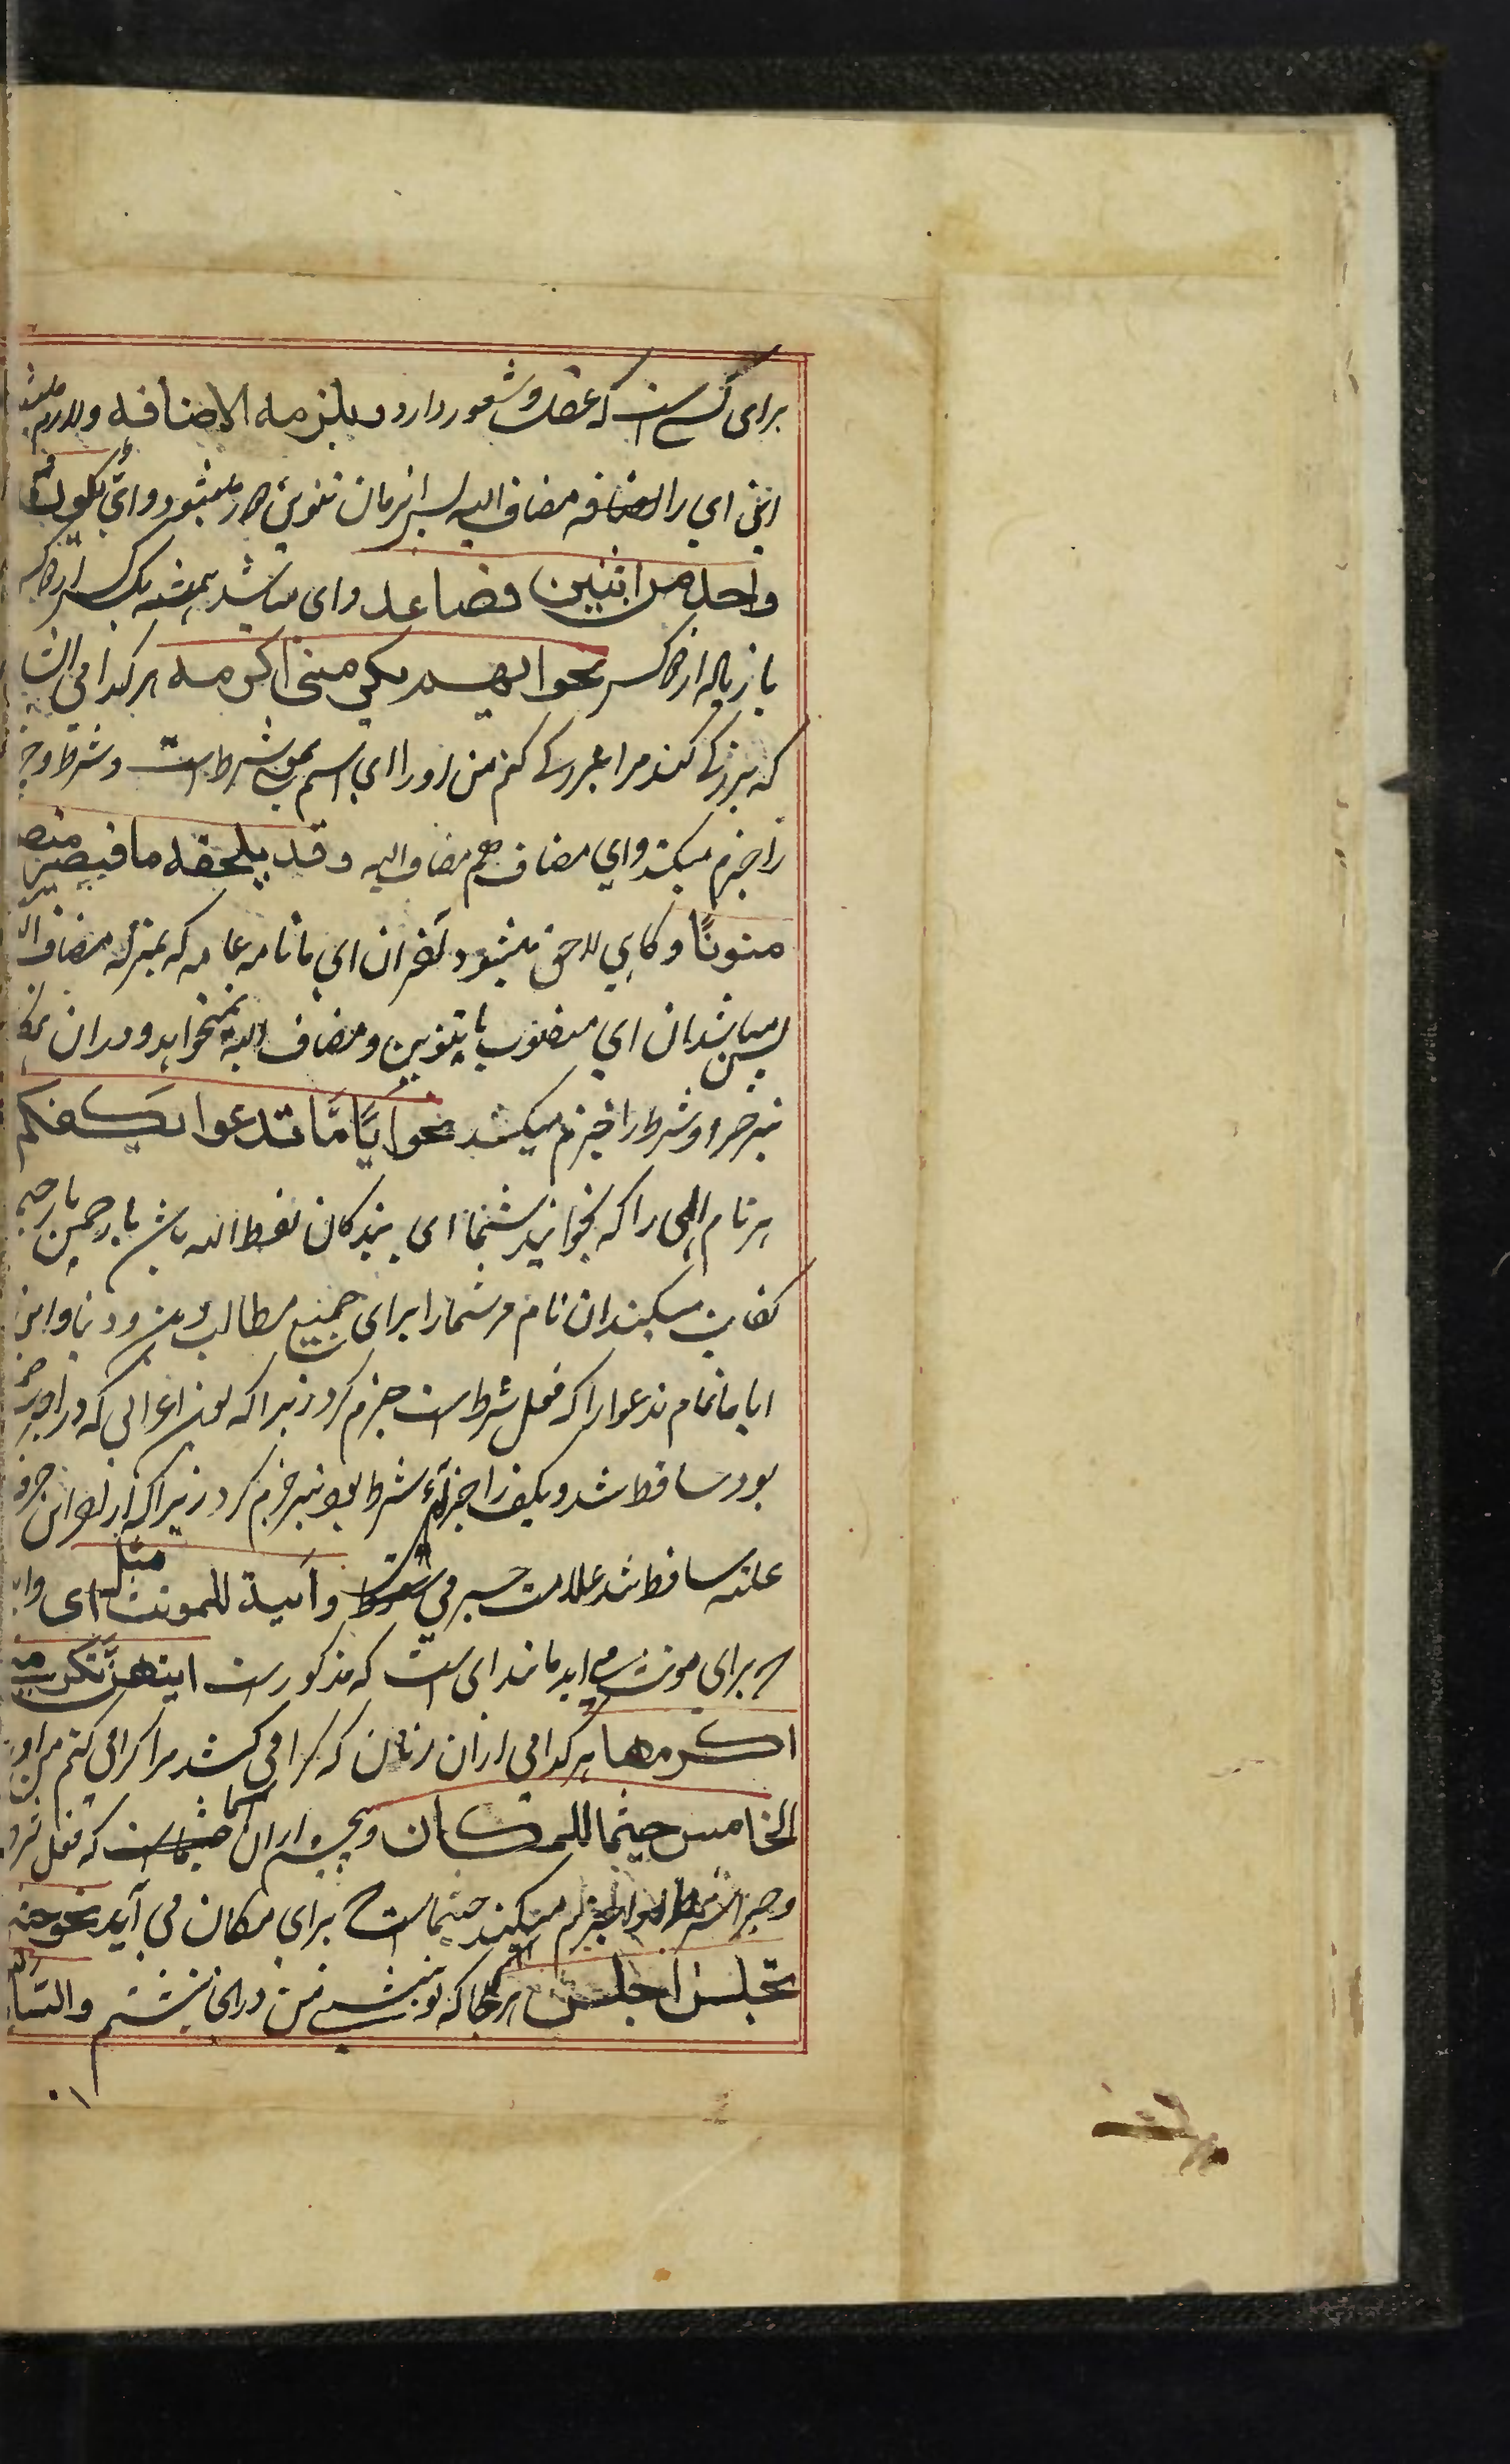 برای کسی است که عقل و شعور دارد و یلزمه الاضافه و لازم میشود
این ای را اضافه مضاف الیه پس ازمان تنوین دور میشود و ایّ یکون
واحد من اثنین فصاعد و ای میباشد همیشه یک کس از دو کس
یا زیاده از دو کس نحو ایهم یکرمنی اکرمه هر کدامی
که بزرگی کند مرا بزرگی کنم من او را ای اسم بمعنی شرط است و شرط و جز
را جزم میکند و ای مضاف هم مضاف الیه و قد یلحقه ما فیصیر
منونًا و گاهی لاحق میشود آخر ان ای ما نامه عامه که بمنزله مضاف
پس میباشد ان ای منصوب با تنوین و مضاف الیه نمیخواهد و دران
نیز جزا و شرط را جزم میکند نحو ایًّا مَّا تدعوا یکفکم
هر نام الهی را که بخوانید شما ای بندگان لفظ الله باشد یا رحمن یا رحیم
کفایت میکند ان نام مر شما را برای جمیع مطالب دین و دنیا و این
ایا ما تمام تدعوا را که فعل شرط است جزم کرد زیرا که نون اعرابی که در اخر
بود ساقط شد و یکف را جزاء شرط بود نیز جزم کرد زیرا که از او این حرف
علته ساقط شد علامت جزمی وأیة للمونث مثل ای و
برای مونث می اید مانند ای است که مذکورست ایتهن تکرمنی
اکرمها هر کدامی ازان زنان که گرامی کند مرا گرامی کنم من او را
الخامس حیثما للمکان و پنجم ازان اسما حیثماست که فعل شرط
و جزا شرط را جزم میکند حیثماست برای مکان می آید نحو حیثما
تجلس اجلس هر جا که تو نشینی من درانجا بنشینم و السا